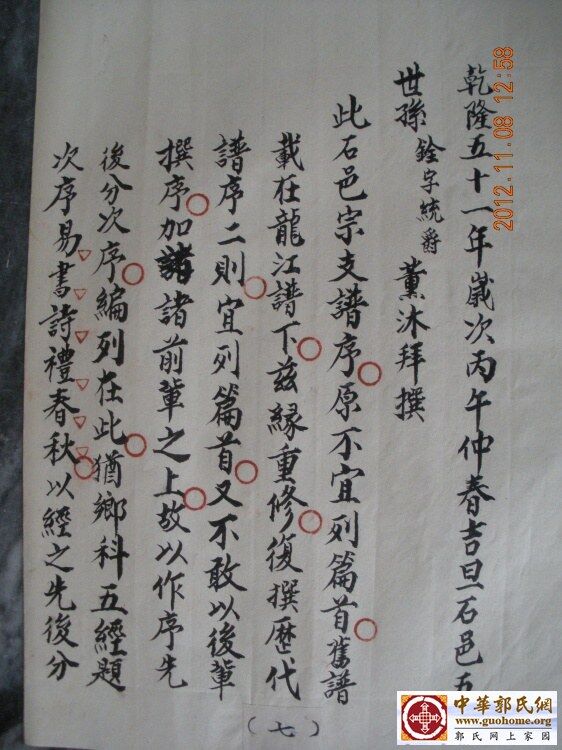 乾隆五十一年歲次丙午仲春吉旦石邑五
世孫銓字統爵薰沐拜撰
此石邑宗支譜序原不宜列篇首舊譜
載在龍江譜下茲緣重修復撰歷代
譜序二則宜列篇首又不敢以後輩
撰序加諸諸前輩之上故以作序先
後分次序編列在此猶鄉科五經題
次序易書詩禮春秋以經之先後分
(七)
2012.11.08 12:58
中華郭氏網
www.guohome.org
郭氏网上家园